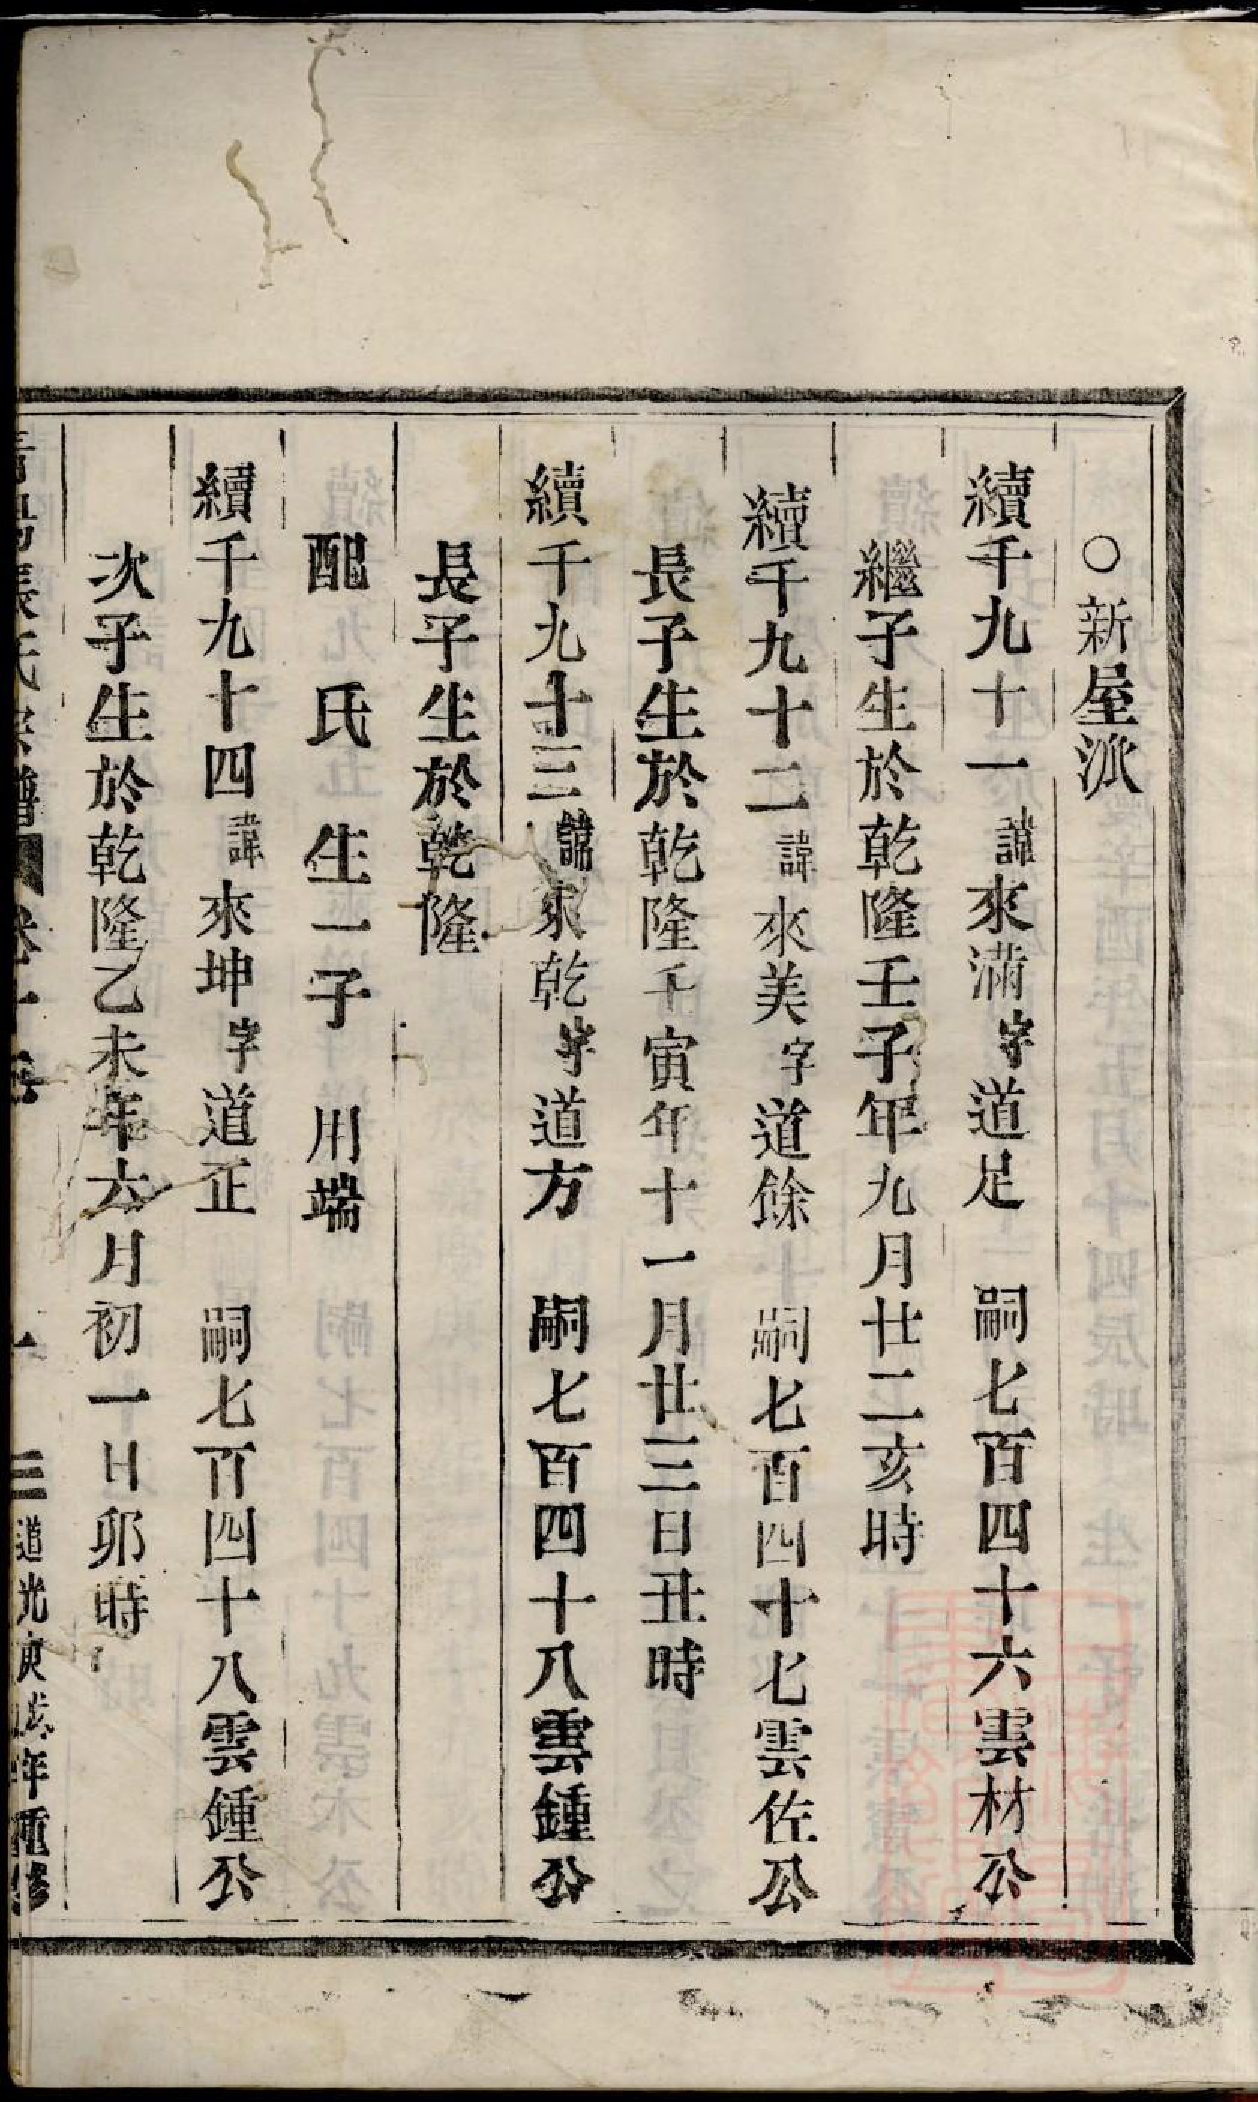 ○新屋派
續千九十一諱來滿字道足 嗣七百四十六雲材公
繼子生於乾隆壬子年九月廿二亥時
續千九十二諱來美字道餘 嗣七百四十七雲佐公
長子生於乾隆壬寅年十一月廿三日丑時
續千九十三諱來乾字道方 嗣七百四十八雲鍾公
長子生於乾隆
配 氏 生一子 用端
續千九十四諱來坤字道正 嗣七百四十八雲鍾公
次子生於乾隆乙未年六月初一日卯時
張氏宗譜 卷十 三 道光庚戌年重修